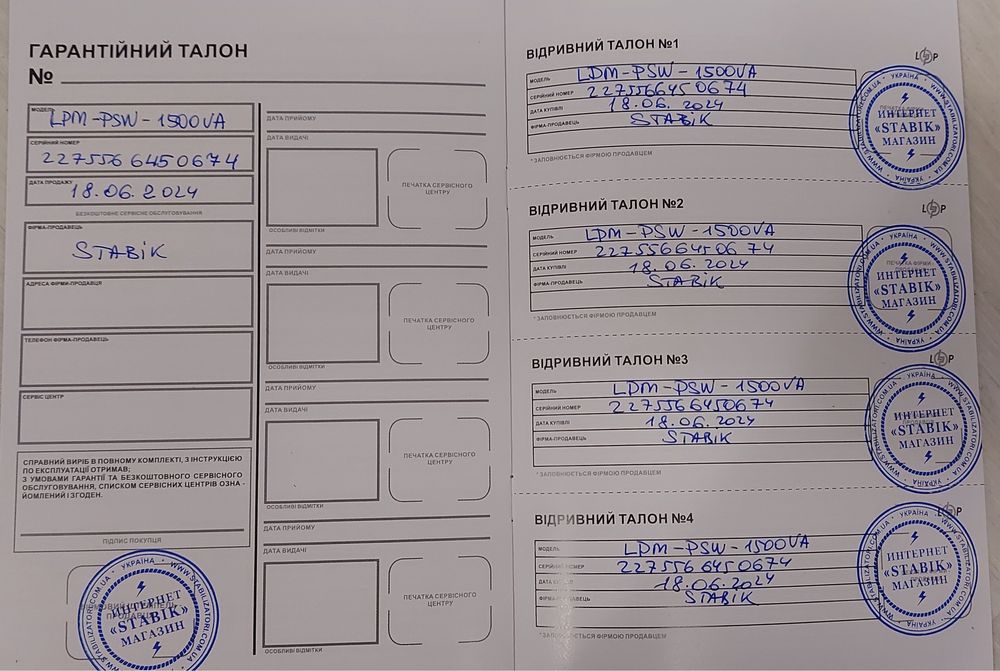 ГАРАНТІЙНИЙ ТАЛОН
№
МОДЕЛЬ
LPM-PSW-1500VA
СЕРІЙНИЙ НОМЕР
2275566450674
ДАТА ПРОДАЖУ
18.06.2024
БЕЗКОШТОВНЕ СЕРВІСНЕ ОБСЛУГОВУВАННЯ
ФІРМА-ПРОДАВЕЦЬ
STABiK
АДРЕСА ФІРМИ-ПРОДАВЦЯ
ТЕЛЕФОН ФІРМА-ПРОДАВЕЦЬ
СЕРВІС ЦЕНТР
СПРАВНИЙ ВИРІБ В ПОВНОМУ КОМПЛЕКТІ, З ІНСТРУКЦІЄЮ
ПО ЕКСПЛУАТАЦІЇ ОТРИМАВ;
З УМОВАМИ ГАРАНТІЇ ТА БЕЗКОШТОВНОГО СЕРВІСНОГО
ОБСЛУГОВУВАННЯ, СПИСКОМ СЕРВІСНИХ ЦЕНТРІВ ОЗНА -
ЙОМЛЕНИЙ І ЗГОДЕН.
ПІДПИС ПОКУПЦЯ
УКРАЇНА • WWW.STABILIZATORI.COM.UA
ИНТЕРНЕТ
«STABIK»
МАГАЗИН
ДАТА ПРИЙОМУ
ДАТА ВИДАЧІ
ПЕЧАТКА СЕРВІСНОГО
ЦЕНТРУ
ОСОБЛИВІ ВІДМІТКИ
ДАТА ПРИЙОМУ
ДАТА ВИДАЧІ
ПЕЧАТКА СЕРВІСНОГО
ЦЕНТРУ
ОСОБЛИВІ ВІДМІТКИ
ДАТА ПРИЙОМУ
ДАТА ВИДАЧІ
ПЕЧАТКА СЕРВІСНОГО
ЦЕНТРУ
ОСОБЛИВІ ВІДМІТКИ
ДАТА ПРИЙОМУ
ДАТА ВИДАЧІ
ПЕЧАТКА СЕРВІСНОГО
ЦЕНТРУ
ОСОБЛИВІ ВІДМІТКИ
ВІДРИВНИЙ ТАЛОН №1
МОДЕЛЬ LDM-PSW-1500VA
СЕРІЙНИЙ НОМЕР 2275566450674
ДАТА КУПІВЛІ 18.06.2024
ФІРМА-ПРОДАВЕЦЬ STABiK
*ЗАПОВНЮЄТЬСЯ ФІРМОЮ ПРОДАВЦЕМ
LP
УКРАЇНА • WWW.STABILIZATORI.COM.UA
ИНТЕРНЕТ
«STABIK»
МАГАЗИН
ВІДРИВНИЙ ТАЛОН №2
МОДЕЛЬ LDM-PSW-1500VA
СЕРІЙНИЙ НОМЕР 2275566450674
ДАТА КУПІВЛІ 18.06.2024
ФІРМА-ПРОДАВЕЦЬ STABiK
*ЗАПОВНЮЄТЬСЯ ФІРМОЮ ПРОДАВЦЕМ
LP
УКРАЇНА • WWW.STABILIZATORI.COM.UA
ИНТЕРНЕТ
«STABIK»
МАГАЗИН
ВІДРИВНИЙ ТАЛОН №3
МОДЕЛЬ LDM-PSW-1500VA
СЕРІЙНИЙ НОМЕР 2275566450674
ДАТА КУПІВЛІ 18.06.2024
ФІРМА-ПРОДАВЕЦЬ STABiK
*ЗАПОВНЮЄТЬСЯ ФІРМОЮ ПРОДАВЦЕМ
LP
УКРАЇНА • WWW.STABILIZATORI.COM.UA
ИНТЕРНЕТ
«STABIK»
МАГАЗИН
ВІДРИВНИЙ ТАЛОН №4
МОДЕЛЬ LDM-PSW-1500VA
СЕРІЙНИЙ НОМЕР 2275566450674
ДАТА КУПІВЛІ 18.06.2024
ФІРМА-ПРОДАВЕЦЬ STABiK
*ЗАПОВНЮЄТЬСЯ ФІРМОЮ ПРОДАВЦЕМ
УКРАЇНА • WWW.STABILIZATORI.COM.UA
ИНТЕРНЕТ
«STABIK»
МАГАЗИН